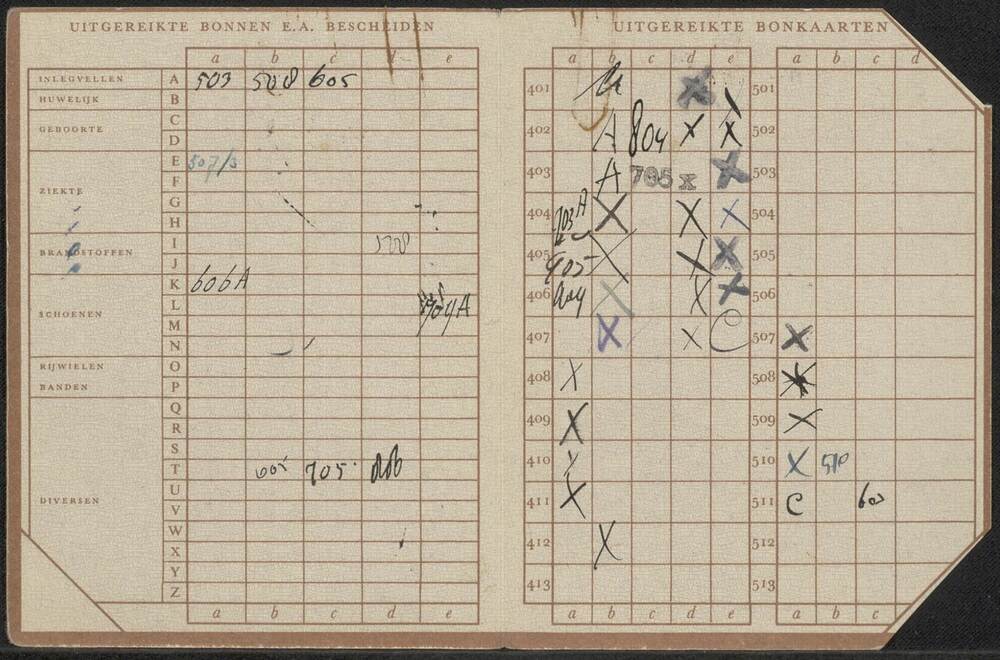 UITGEREIKTE BONNEN E.A. BESCHEIDEN
a b c d e
INLEGVELLEN A 503 508 605
HUWELIJK B
GEBOORTE C
D
ZIEKTE E 507/3
F
G
H
BRANDSTOFFEN I
J
SCHOENEN K 606A
L
M
N
RIJWIELEN O
BANDEN P
DIVERSEN Q
R
S
T 605 705
U
V
W
X
Y
Z
a b c d e
UITGEREIKTE BONKAARTEN
a b c d e a b c d
401 X 501
402 A 804 X X 502
403 A 705 X X 503
404 703A X X X 504
405 405 X X X 505
406 X X X 506
407 X X C 507 X
408 X 508 X
409 X 509 X
410 X 510 X 510
411 X 511 C 603
412 X 512
413 513
a b c d e a b c